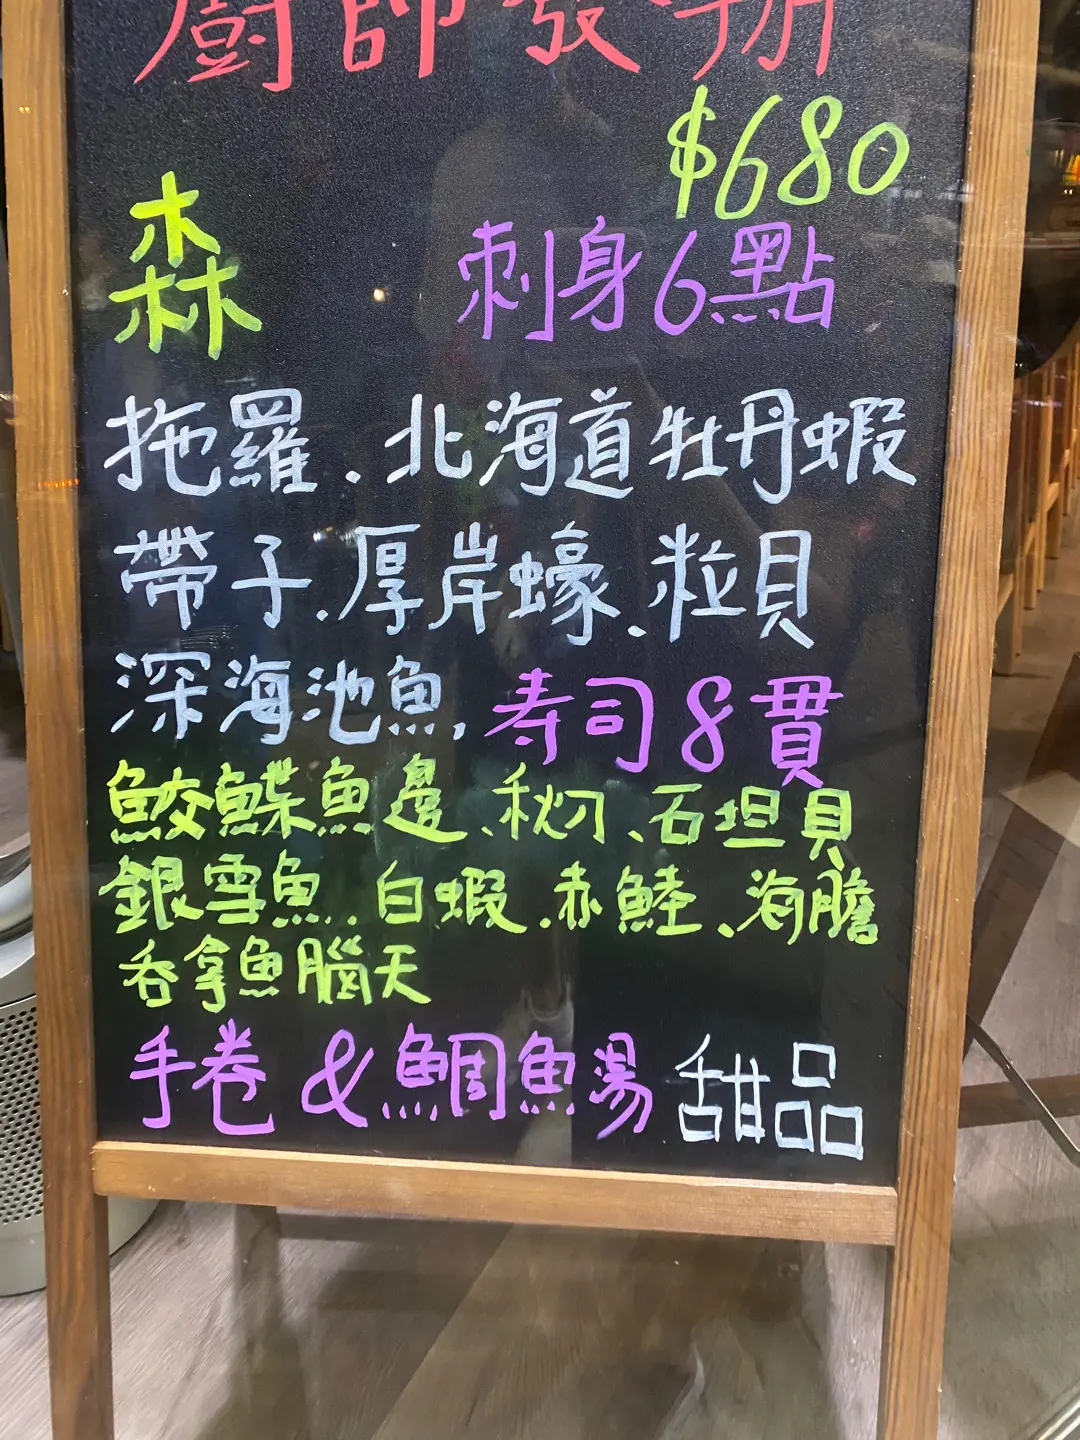 廚師發辦
$680
森 刺身6點
拖羅.北海道牡丹蝦
帶子.厚岸蠔.粒貝
深海池魚,寿司8貫
鮫鰈魚邊、秋刀、石垣貝
銀雪魚.白蝦.赤鯥、海膽
吞拿魚腦天
手卷&鯛魚湯 甜品